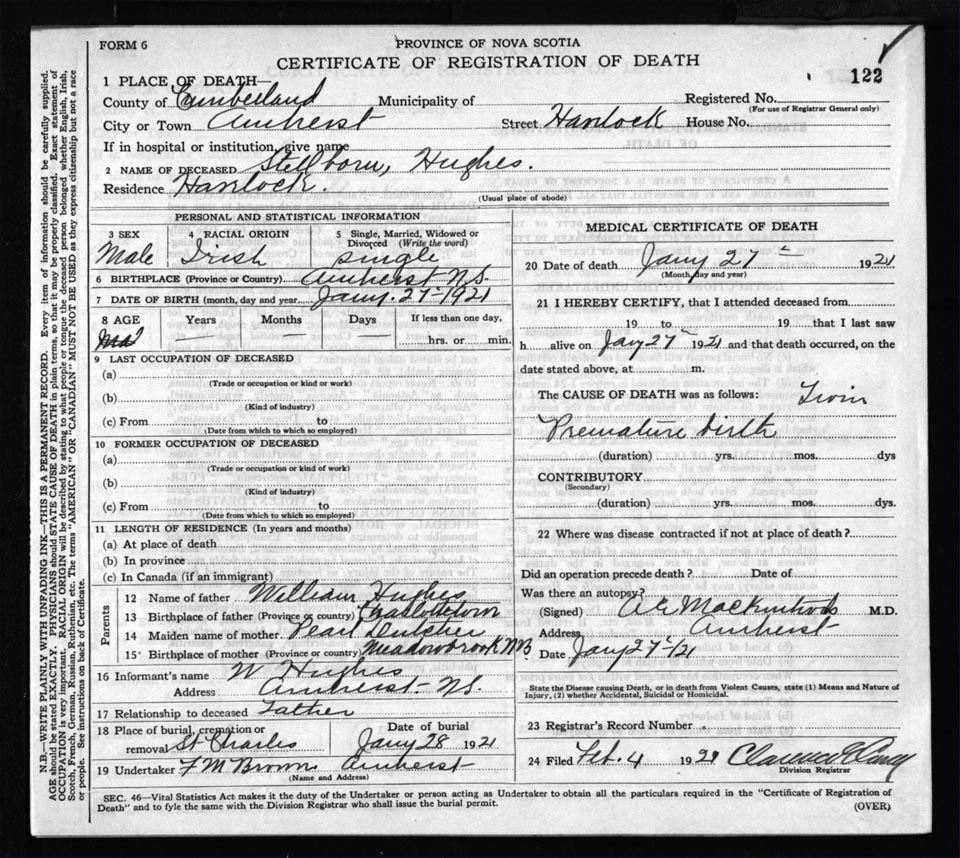 FORM 6
PROVINCE OF NOVA SCOTIA
CERTIFICATE OF REGISTRATION OF DEATH
122
1 PLACE OF DEATH—
County of Cumberland Municipality of Registered No.
(For use of Registrar General only)
City or Town Amherst Street Havelock House No.
If in hospital or institution, give name
2 NAME OF DECEASED Stellborn, Hughes.
Residence Havelock.
(Usual place of abode)
PERSONAL AND STATISTICAL INFORMATION
3 SEX 4 RACIAL ORIGIN 5 Single, Married, Widowed or Divorced (Write the word)
Male Irish single
6 BIRTHPLACE (Province or Country) Amherst N.S.
7 DATE OF BIRTH (month, day and year Jany. 27-1921
8 AGE Years Months Days If less than one day,
— — — hrs. or min.
9 LAST OCCUPATION OF DECEASED
(a)
(Trade or occupation or kind or work)
(b)
(Kind of industry)
(c) From to
(Date from which to which so employed)
10 FORMER OCCUPATION OF DECEASED
(a)
(Trade or occupation or kind or work)
(b)
(Kind of industry)
(c) From to
(Date from which to which so employed)
11 LENGTH OF RESIDENCE (In years and months)
(a) At place of death
(b) In province
(c) In Canada (if an immigrant)
Parents
12 Name of father William Hughes
13 Birthplace of father (Province or country) Charlottetown
14 Maiden name of mother Pearl Dutcher
15 Birthplace of mother (Province or country) Meadowbrook NB
16 Informant's name W Hughes
Address Amherst N.S.
17 Relationship to deceased Father
18 Place of burial, cremation or removal St Charles
Date of burial
Jany 28 1921
19 Undertaker F M Brown Amherst
(Name and Address)
MEDICAL CERTIFICATE OF DEATH
20 Date of death Jany 27 1921
(Month, day and year)
21 I HEREBY CERTIFY, that I attended deceased from
19 to 19 that I last saw
h alive on Jany 27 1921 and that death occurred, on the
date stated above, at m.
The CAUSE OF DEATH was as follows: Twin
Premature birth
(duration) yrs. mos. dys
CONTRIBUTORY
(Secondary)
(duration) yrs. mos. dys.
22 Where was disease contracted if not at place of death?
Did an operation precede death? Date of
Was there an autopsy?
(Signed) M.D.
Address Amherst
Date Jany 27/21
State the Disease causing Death, or in death from Violent Causes, state (1) Means and Nature of
Injury, (2) whether Accidental, Suicidal or Homicidal.
23 Registrar's Record Number
24 Filed Feb. 4 1921
Division Registrar
SEC. 46—Vital Statistics Act makes it the duty of the Undertaker or person acting as Undertaker to obtain all the particulars required in the "Certificate of Registration of
Death" and to fyle the same with the Division Registrar who shall issue the burial permit.
(OVER)
N.B.—WRITE PLAINLY WITH UNFADING INK—THIS IS A PERMANENT RECORD. Every item of information should be carefully supplied.
AGE should be stated EXACTLY. PHYSICIANS should STATE CAUSE OF DEATH in plain terms, so that it may be properly classified. Exact statement of
OCCUPATION is very important. RACIAL ORIGIN will be described by stating to what people or tongue the deceased person belonged, whether English, Irish,
Scotch, French, German, Russian, Ruthenian, etc. The terms "AMERICAN" OR "CANADIAN" MUST NOT BE USED as they express citizenship but not a race
or people. See instructions on back of Certificate.